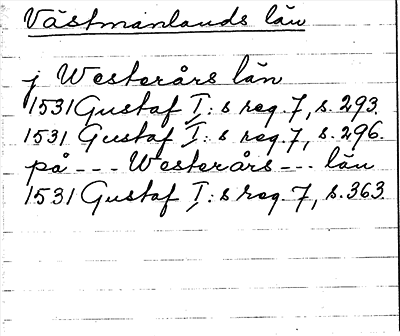 Västmanlands län
j Westerårs län
1531 Gustaf I:s reg. 7, s. 293.
1531 Gustaf I:s reg. 7, s. 296.
på --- Westerårs --- län
1531 Gustaf I:s reg. 7, s. 363.